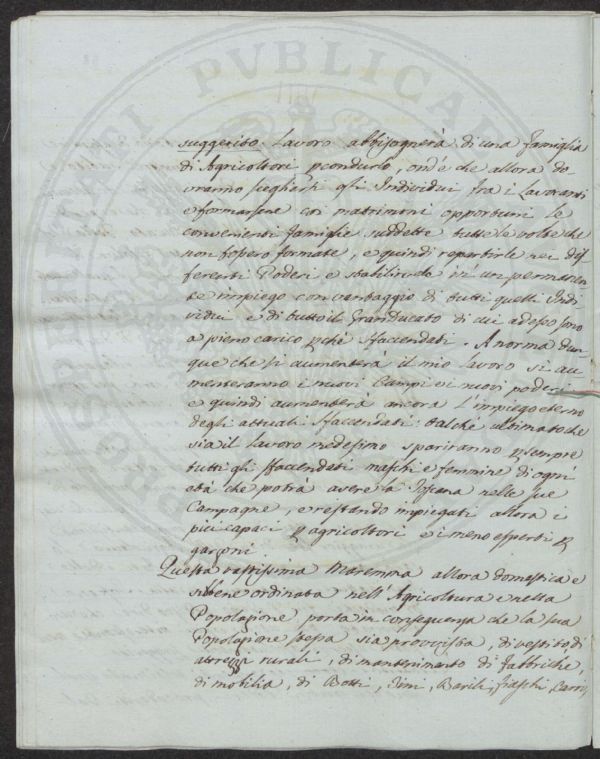 PROSPERITATI PVBLICAE
suggerito Lavoro abbisognerà di una famiglia
di Agricoltori p condurlo, ond'è che allora do-
vranno sceghersi gli Individui fra i Lavoranti
e formarsene coi matrimonj opportuni le
convenienti famiglie suddette tutte le volte che
non fossero formate, e quindi repartirle nei dif
ferenti Poderi e stabilirvele in un permanen-
te impiego con vantaggio di tutti quelli Indi-
vidui e di tutto il GranDucato di cui adesso sono
a pieno carico p chè sfaccendati. A norma dun
que che si aumenterà il mio lavoro si au
menteranno i nuovi Campi ei nuovi poderi
e quindi aumenterà ancora l'impiego eterno
degli attuali sfaccendati: talchè ultimato che
sia il lavoro medesimo spariranno p sempre
tutti gli sfaccendati maschi e femmine di ogni
età che potrà avere la Toscana nelle sue
Campagne, e restando impiegati allora i
più capaci p agricoltori e i meno esperti p
garzoni
Questa vastissima Maremma allora domestica e
sibbene ordinata nell'Agricoltura e nella
Popolazione porta in conseguenza che la sua
Popolazione stessa sia provvista, di vestito di
attrezzi rurali, di mantenimento di fabbriche,
di mobilia, di Botti, Tini, Barili, fiaschi, Carri,